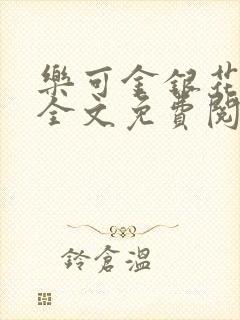 樂可金銀花
全文免費閱
鈴倉溫